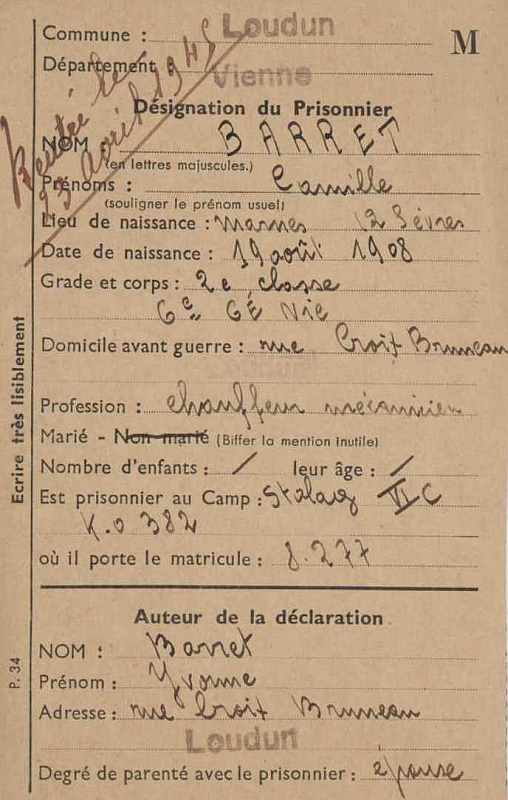 Commune : Loudun
M
Département Vienne
Rentré le
23 avril 1945
Désignation du Prisonnier
NOM : BARRET
(en lettres majuscules.)
Prénoms : Camille
(souligner le prénom usuel)
Lieu de naissance : Marnes (2 Sèvres
Date de naissance : 19 août 1908
Grade et corps : 2e classe
6e GÉNIE
Domicile avant guerre : rue Croix Bruneau
Loudun
Profession : chauffeur mécanicien
Marié - Non marié (Biffer la mention inutile)
Nombre d'enfants : / leur âge : /
Est prisonnier au Camp : Stalag VI C
K.o 382
où il porte le matricule : 8.277
Auteur de la déclaration
NOM : Barret
Prénom : Yvonne
Adresse : rue Croix Bruneau
Loudun
Degré de parenté avec le prisonnier : épouse
Ecrire très lisiblement
P. 34